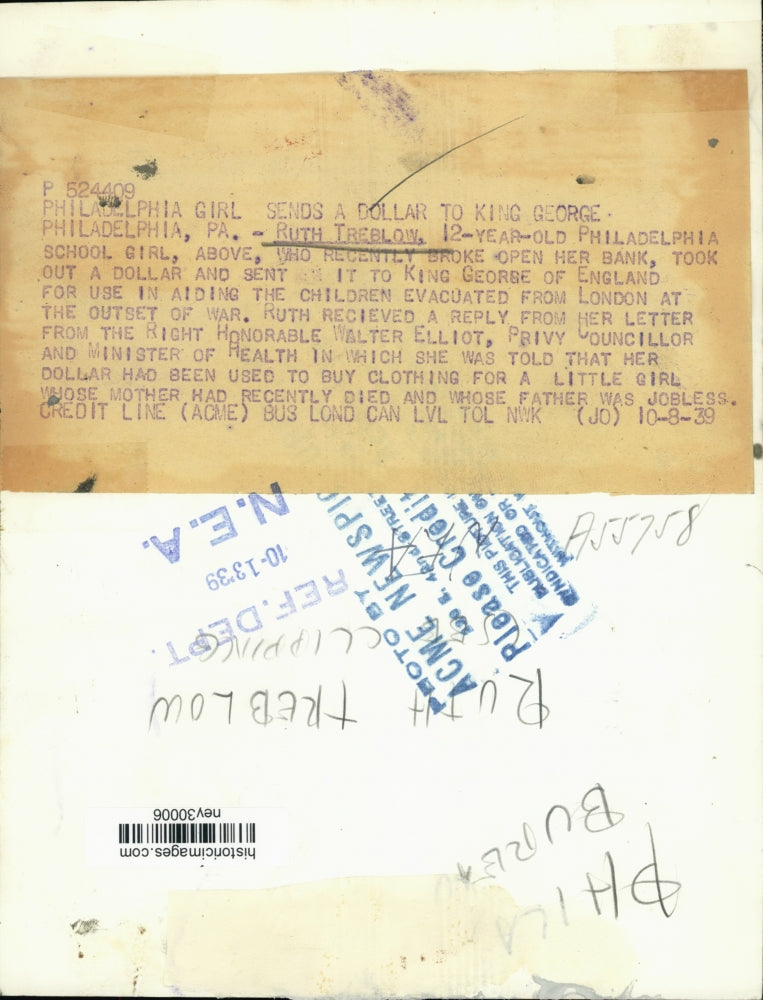 P 524409
PHILADELPHIA GIRL SENDS A DOLLAR TO KING GEORGE.
PHILADELPHIA, PA. - RUTH TREBLOW, 12-YEAR-OLD PHILADELPHIA
SCHOOL GIRL, ABOVE, WHO RECENTLY BROKE OPEN HER BANK, TOOK
OUT A DOLLAR AND SENT IT TO KING GEORGE OF ENGLAND
FOR USE IN AIDING THE CHILDREN EVACUATED FROM LONDON AT
THE OUTSET OF WAR. RUTH RECIEVED A REPLY FROM HER LETTER
FROM THE RIGHT HONORABLE WALTER ELLIOT, PRIVY COUNCILLOR
AND MINISTER OF HEALTH IN WHICH SHE WAS TOLD THAT HER
DOLLAR HAD BEEN USED TO BUY CLOTHING FOR A LITTLE GIRL
WHOSE MOTHER HAD RECENTLY DIED AND WHOSE FATHER WAS JOBLESS.
CREDIT LINE (ACME) BUS LOND CAN LVL TOL NWK (JO) 10-8-39
N.E.A.
10-13'39
REF. DEPT.
PHOTO BY
ACME NEWSPIC
Please Credit
THIS PICTURE
A55758
CLIPPING
RUTH TREBLOW
ney30006
historicimages.com
PHILA
BUREA